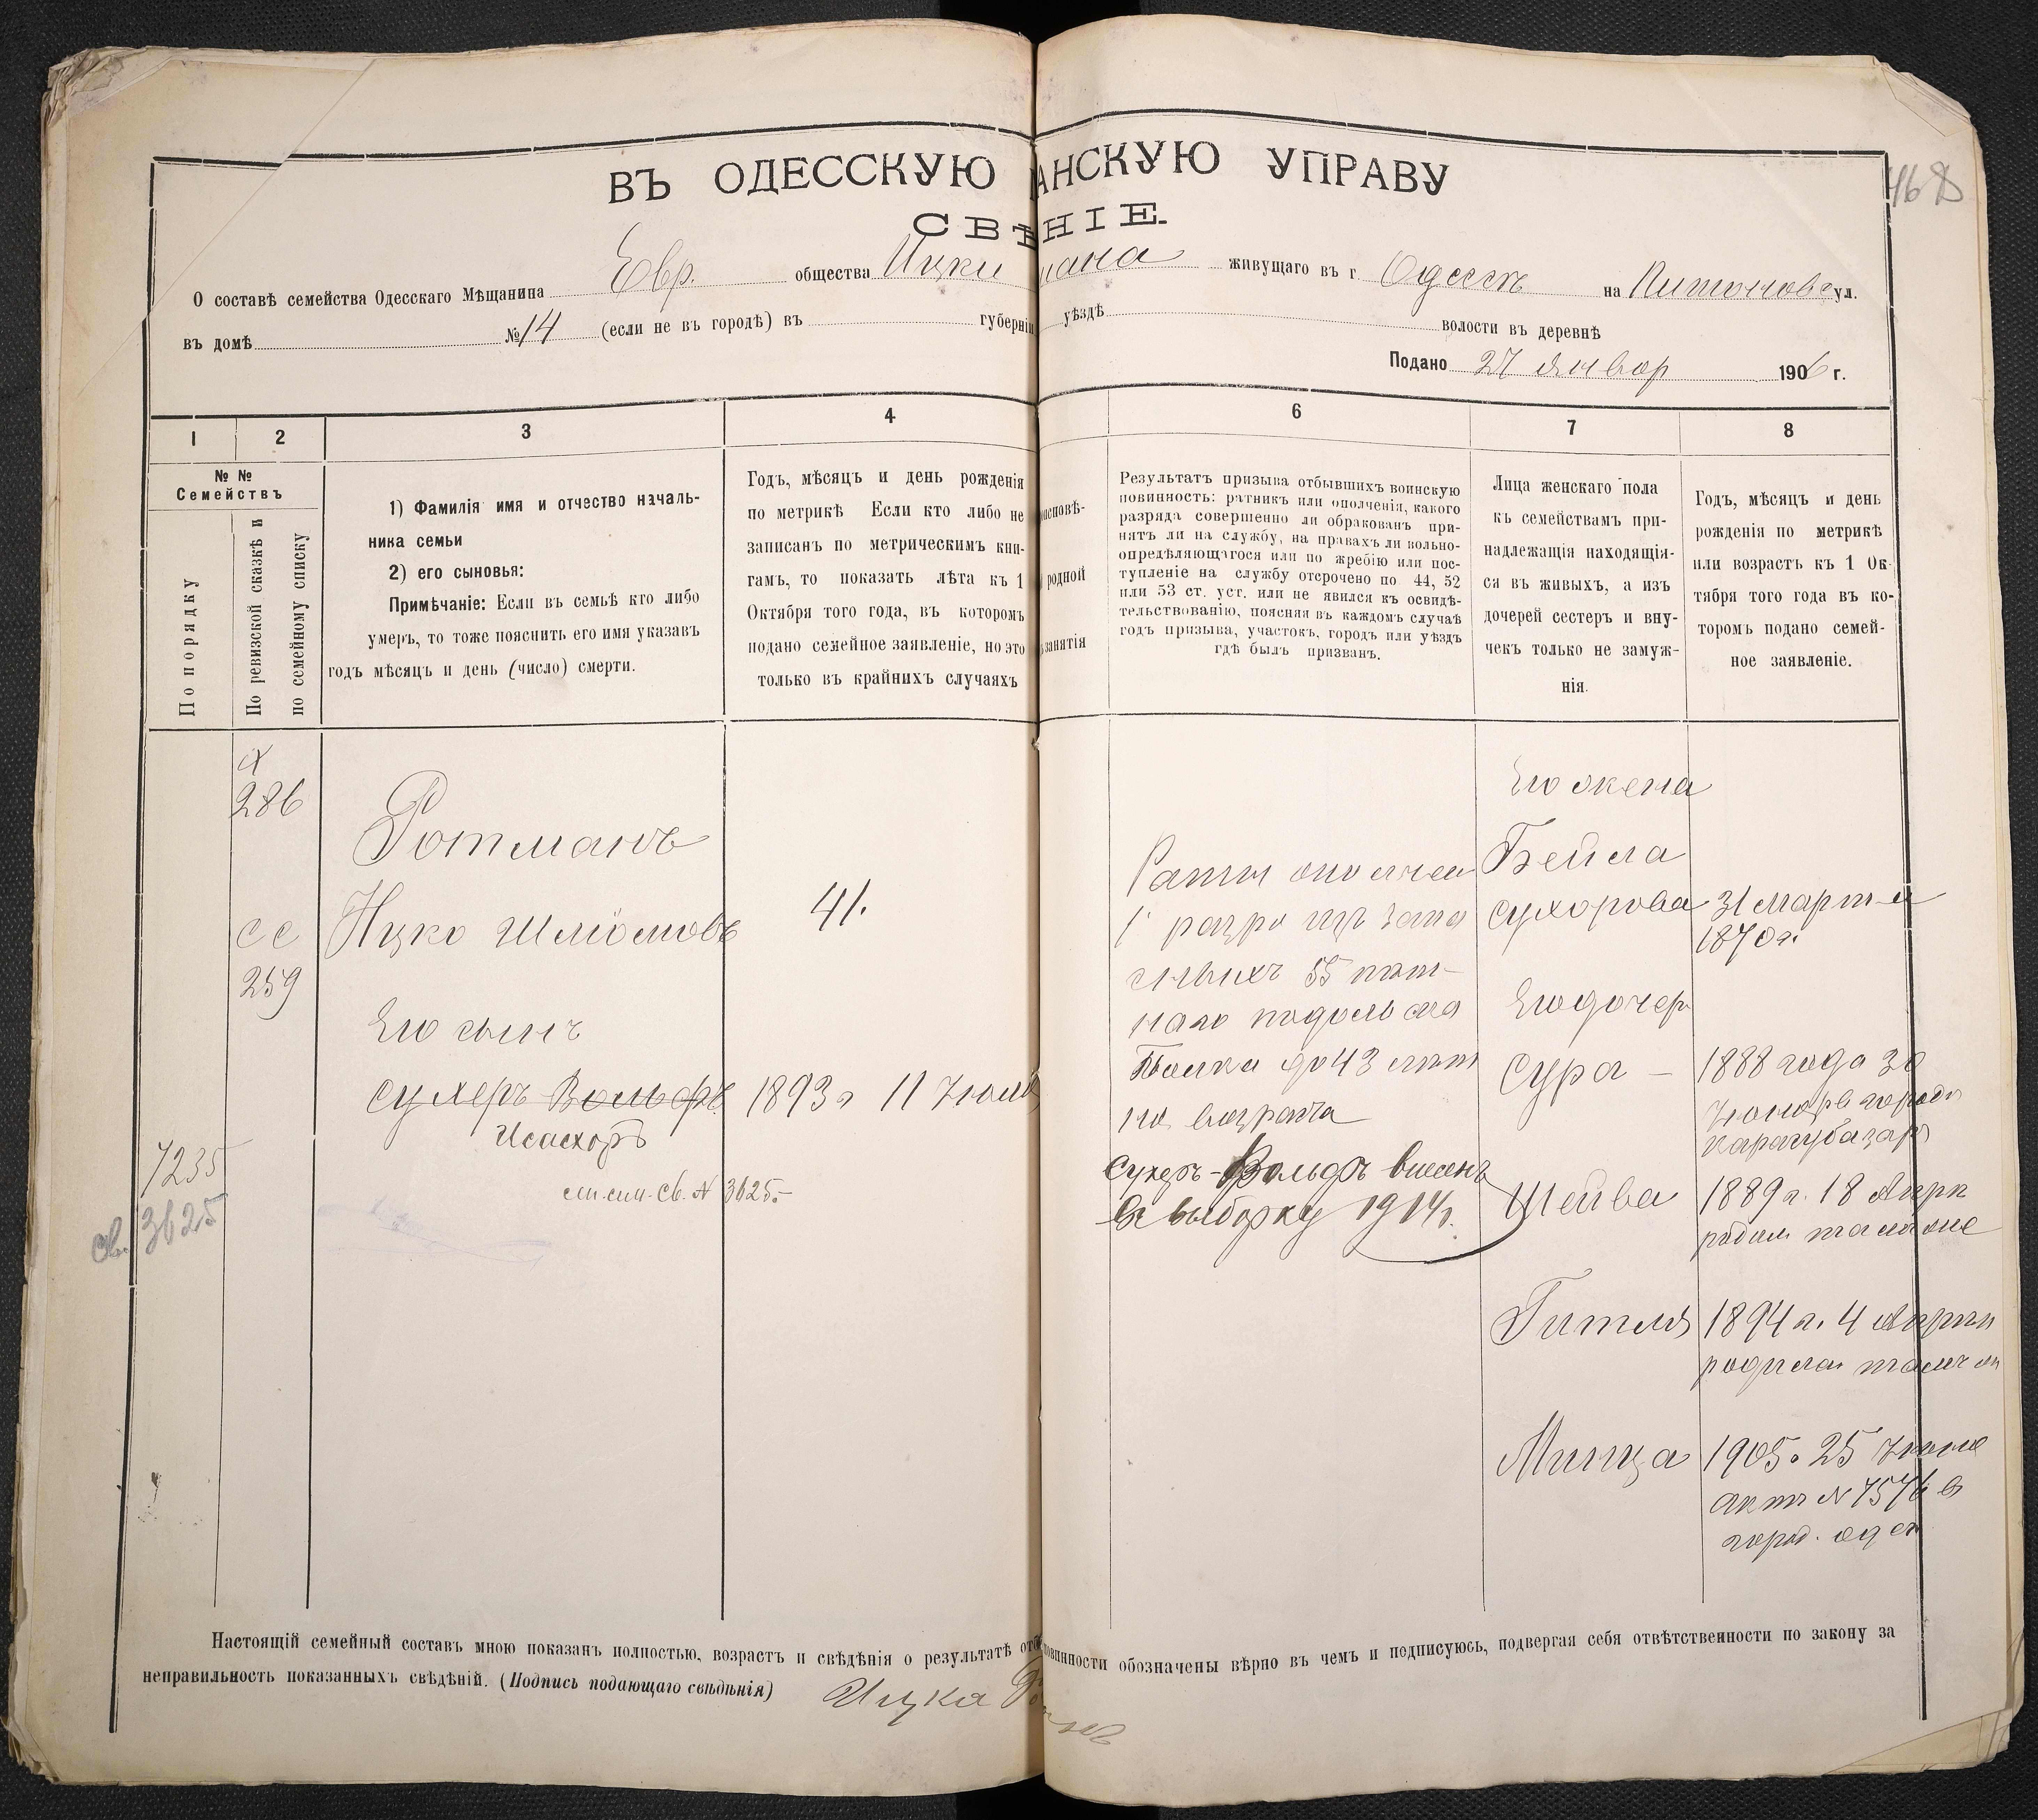 ВЪ ОДЕССКУЮ АНСКУЮ УПРАВУ
СВѢНІЕ.
О составѣ семейства Одесскаго Мѣщанина Евр. общества Ицки мана живущаго въ г. Одессѣ на ул.
въ домѣ № 14 (если не въ городѣ) въ губерніи уѣздѣ волости въ деревнѣ
Подано 27 Январ 1906 г.
468
1
2
3
4
6
7
8
№ №
Семействъ
По порядку
По ревизской сказкѣ и
по семейному списку
1) Фамилія имя и отчество началь-
ника семьи
2) его сыновья:
Примѣчаніе: Если въ семьѣ кто либо
умеръ, то тоже пояснить его имя указавъ
годъ мѣсяцъ и день (число) смерти.
Годъ, мѣсяцъ и день рожденія
по метрикѣ Если кто либо не
записанъ по метрическимъ кни-
гамъ, то показать лѣта къ 1
Октября того года, въ которомъ
подано семейное заявленіе, но это
только въ крайнихъ случаяхъ
исповѣ-
родной
занятія
Результатъ призыва отбывшихъ воинскую
повинность: ратникъ или ополченія, какого
разряда совершенно ли обракованъ при-
нятъ ли на службу, на правахъ ли вольно-
опредѣляющагося или по жребію или пос-
тупленіе на службу отсрочено по 44, 52
или 53 ст. уст. или не явился къ освидѣ-
тельствованію, поясняя въ каждомъ случаѣ
годъ призыва, участокъ, городъ или уѣздъ
гдѣ былъ призванъ.
Лица женскаго пола
къ семействамъ при-
надлежащія находящія-
ся въ живыхъ, а изъ
дочерей сестеръ и вну-
чекъ только не замуж-
нія.
Годъ, мѣсяцъ и день
рожденія по метрикѣ
или возрастъ къ 1 Ок-
тября того года въ ко-
торомъ подано семей-
ное заявленіе.
286
Ротманъ
сс
259
Ицко Шлiомовъ
41.
Его сынъ
Сухеръ-Вольфъ 1893 г 11 Іюля
Исасхоръ
7235
св. 3625
см. сим. св. N 3625.
Ратн ополчен
1 разр из запа
сныхъ 55 пѣт-
наго подольска
Полка до 43 лѣт
на возраста
Сухеръ-Вольфъ внесенъ
въ выборку 1914 г.
Его жена
Бейла
Сухорова 31 марта
1870 г.
Его дочер
Сура – 1888 года 30
городѣ
Карасубазарѣ
Шейва 1889 г. 18 Апрѣ
родил тамже
Гитля 1894 г. 4 Апрѣл
родилас тамъ
Минца 1905 г 25 Іюля
актъ N 7576 в
город. одес
Настоящій семейный составъ мною показанъ полностью, возрастъ и свѣдѣнія о результатѣ отб повинности обозначены вѣрно въ чемъ и подписуюсь, подвергая себя отвѣтственности по закону за
неправильность показанныхъ свѣдѣній. (Подпись подающаго свѣдѣнія) Ицка Ро